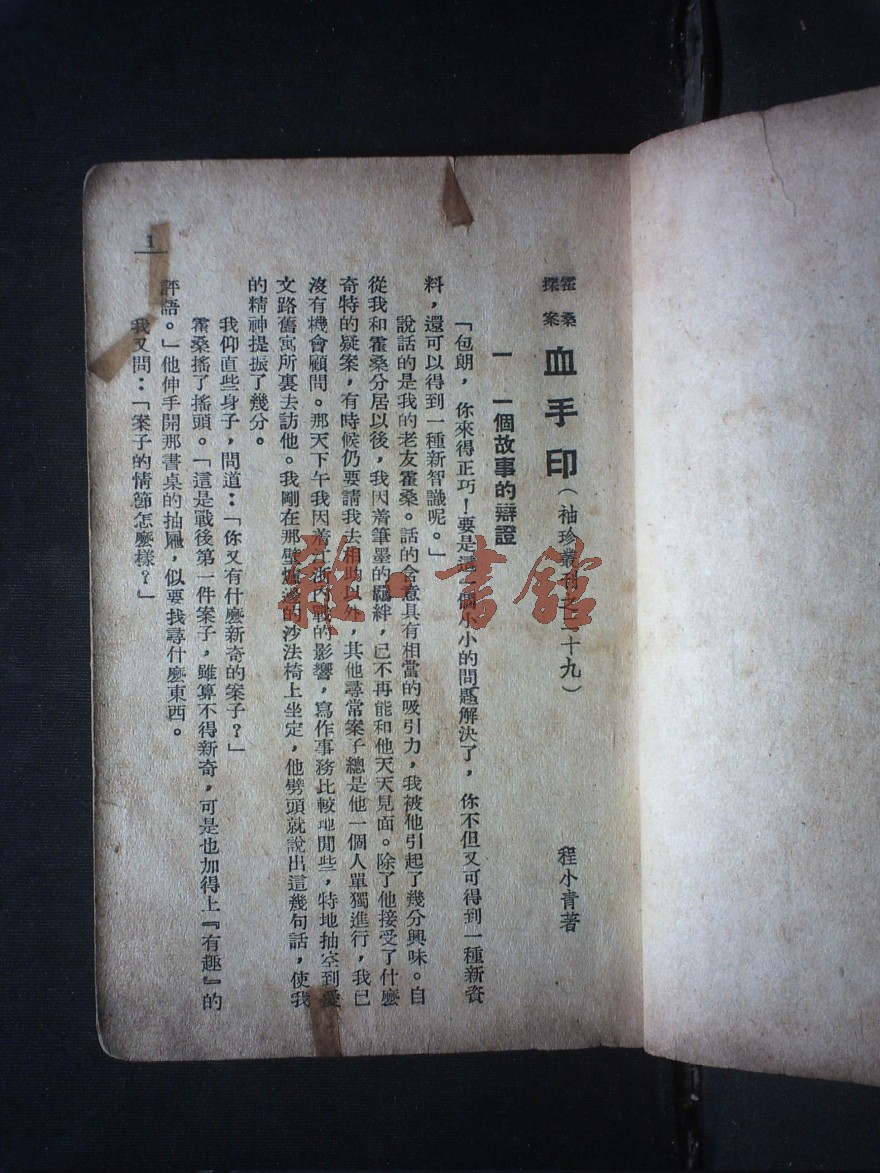 霍桑探案 血手印（袖珍叢刊之二十九） 程小青著
一 一個故事的辯證
「包朗，你來得正巧！要是這一個小小的問題解決了，你不但又可得到一種新資
料，還可以得到一種新智識呢。」
說話的是我的老友霍桑。話的含意具有相當的吸引力，我被他引起了幾分興味。自
從我和霍桑分居以後，我因着筆墨的羈絆，已不再能和他天天見面。除了他接受了什麼
奇特的疑案，有時候仍要請我去相助以外，其他尋常案子總是他一個人單獨進行，我已
沒有機會顧問。那天下午我因着江浙內戰的影響，寫作事務比較地閒些，特地抽空到愛
文路舊寓所裏去訪他。我剛在那壁爐邊的沙法椅上坐定，他劈頭就說出這幾句話，使我
的精神提振了幾分。
我仰直些身子，問道：「你又有什麼新奇的案子？」
霍桑搖了搖頭。「這是戰後第一件案子，雖算不得新奇，可是也加得上『有趣』的
評語。」他伸手開那書桌的抽屜，似要找尋什麼東西。
我又問：「案子的情節怎麼樣？」
1
雜·書館